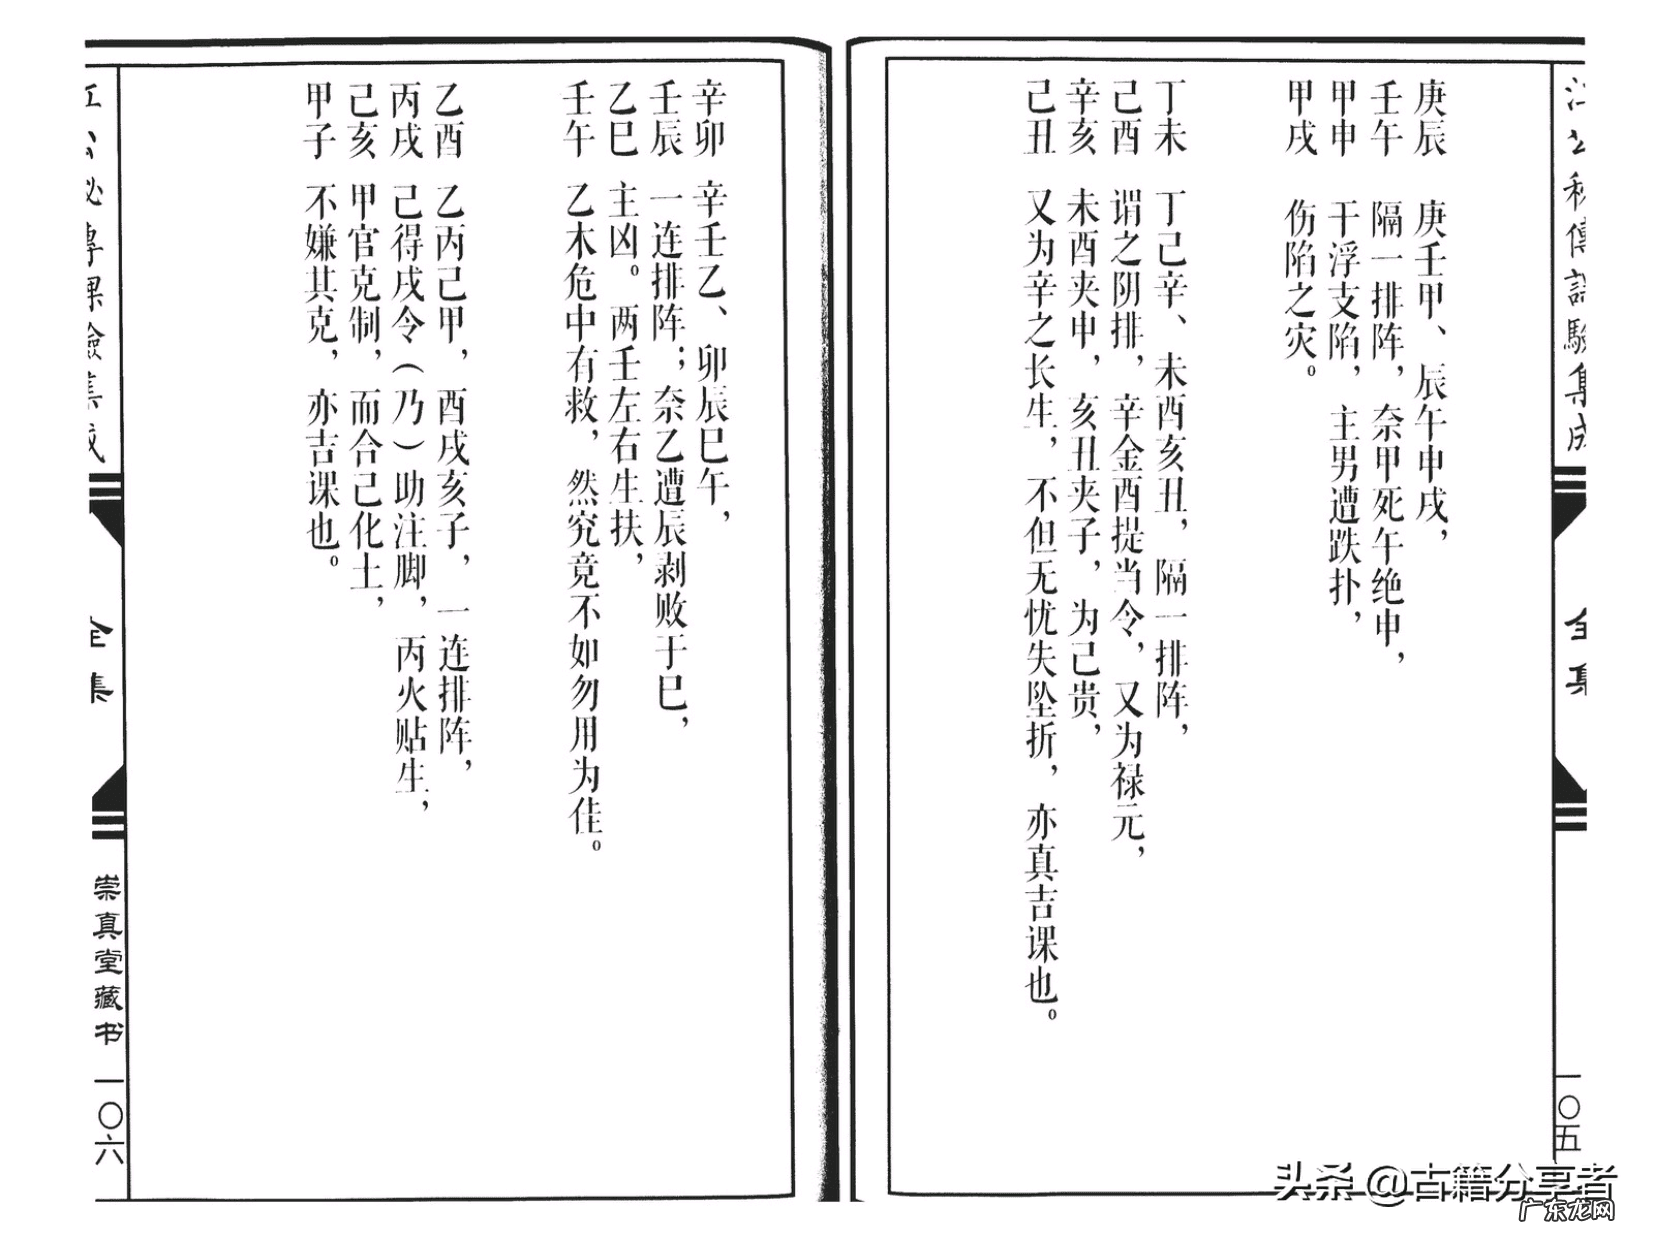 江公秘傳課驗集成
全集
一〇五
庚辰 庚壬甲、辰午申戌，
壬午 隔一排阵，奈甲死午绝申，
甲申 干浮支陷，主男遭跌扑，
甲戌 伤陷之灾。
丁未 丁己辛、未酉亥丑，隔一排阵，
己酉 谓之阴排，辛金酉提当令，又为禄元，
辛亥 未酉夹申，亥丑夹子，为己贵，
己丑 又为辛之长生，不但无忧失坠折，亦真吉课也。
辛卯 辛壬乙、卯辰巳午，
壬辰 一连排阵；奈乙遭辰剥败于巳，
乙巳 主凶。两壬左右生扶，
壬午 乙木危中有救，然究竟不如勿用为佳。
乙酉 乙丙己甲，酉戌亥子，一连排阵，
丙戌 己得戌令（乃）助注脚，丙火贴生，
己亥 甲官克制，而合己化土，
甲子 不嫌其克，亦吉课也。
江公秘傳課驗集成
全集
崇真堂藏书
一〇六
头条 @古籍分享者
广东龙网